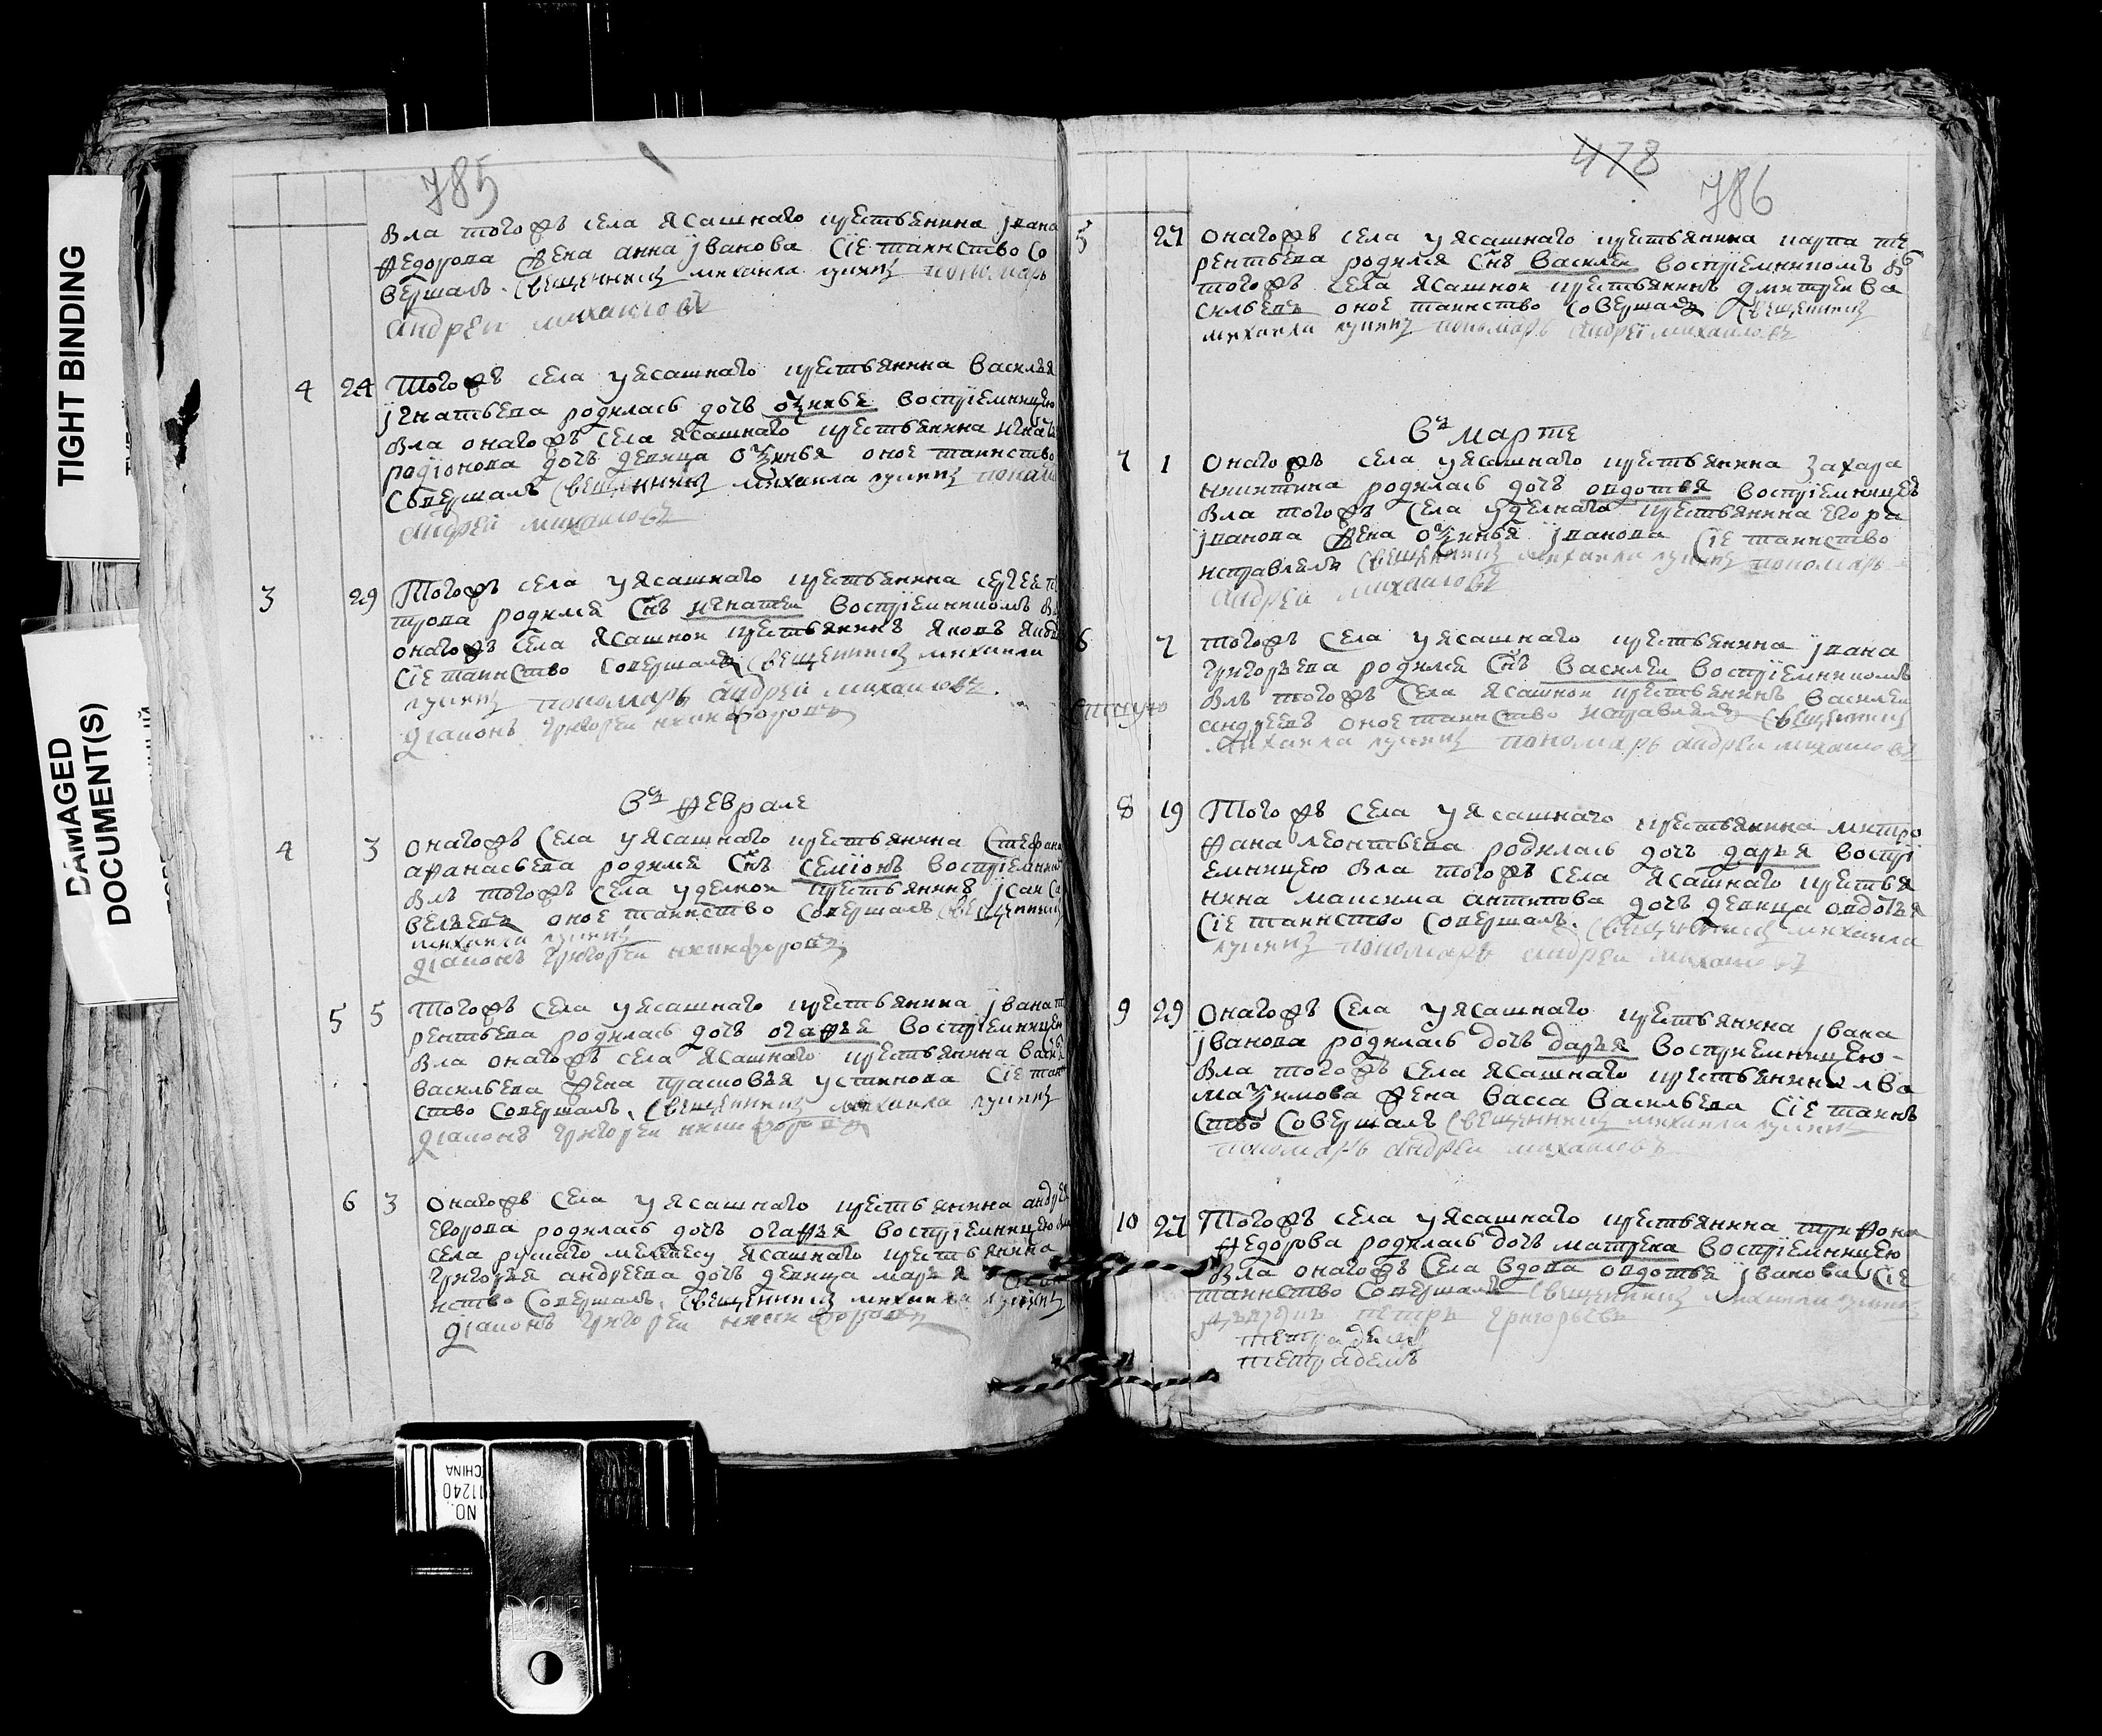 TIGHT BINDING
DAMAGED
DOCUMENT(S)
785
вла тогожъ села ясашнаго крестьянина Iвана
Федорова жена анна Iванова сiе таинство со
вершалъ священникъ михаила пономарь
андреи михаиловъ
4 24 Тогожъ села у ясашнаго крестьянина василья
Iгнатьева родилась дочь офимья воспрiемницею
вла оногожъ села ясашнаго крестьянина игнать
родiонова дочь девица офимья оное таинство
совершалъ священникъ михаила понам
андреи михаиловъ
3 29 Тогожъ села у ясашнаго крестьянина сергея пе
трова родился снъ игнатеи воспрiемникомъ вл
оногожъ села ясашнои крестьянинъ яковъ
сiе таинство совершалъ священникъ михаила
пономарь андреи михаиловъ
дiаконъ григореи никифоровъ
Въ феврале
4 3 оногожъ села у ясашнаго крестьянина Стефана
афанасьева родился снъ семiонъ воспрiемник
влъ тогожъ села уделнои крестьянинъ Iсаи са
вельевъ оное таинство совершалъ священникъ
михаила
дiаконъ григореи никифоровъ
5 5 Тогожъ села у ясашнаго крестьянина Iвана те
рентьева родилась дочь огафья воспрiемницею
вла оногожъ села ясашнаго крестьянина
васильева жена прасковья устинова сiе таин
ство совершалъ священникъ михаила
дiаконъ григореи никифоровъ
6 3 оногожъ села у ясашнаго крестьянина андрея
егорова родилась дочь огафья воспрiемницею
села ясашнаго крестьянина
григорья андреева дочь девица марья
нство совершалъ священникъ михаила
дiаконъ григореи никифоровъ
478
786
5 27 оногожъ села у ясашнаго крестьянина карпа те
рентьева родился снъ василеи воспрiемникомъ въ
тогожъ села ясашнои крестьянинъ дмитреи ва
сильевъ оное таинство совершалъ священникъ
михаила пономарь андреi михаиловъ
Въ марте
7 1 Оногожъ села у ясашнаго крестьянина захара
никитина родилась дочь овдотья воспрiемницеъ
вла тогожъ села уделнаго крестьянина егора
Iванова жена офимья Iванова сiе таинство
исправлялъ священникъ михаила пономарь
андреи михаиловъ
6 7 Тогожъ села у ясашнаго крестьянина Iвана
григорьева родился снъ василеи воспрiемникомъ
влъ тогожъ села ясашнои крестьянинъ василеи
андреевъ оное таинство исправлялъ священникъ
михаила пономарь андреи михаиловъ
8 19 Тогожъ села у ясашнаго крестьянина митро
фана леонтьева родилась дочь дарья воспрi
емницею вла тогожъ села ясашнаго крестья
нина максима антипова дочь девица овдотья
сiе таинство совершалъ священникъ михаила
пономарь андреи михаиловъ
9 29 Оногожъ села у ясашнаго крестьянина Iвана
Iванова родилась дочь дарья восприемницею
вла тогожъ села ясашнаго крестьянина лва
мазимова жена васса васильева сiе таинъ
ство совершалъ священникъ михаила
пономарь андреи михаиловъ
10 27 Тогожъ села у ясашнаго крестьянина трифона
федорова родилась дочь матрена воспрiемницею
вла оногожъ села вдова овдотья Iванова сiе
таинство совершалъ священникъ михаила
петръ григорьевъ
NO. 11240
CHINA